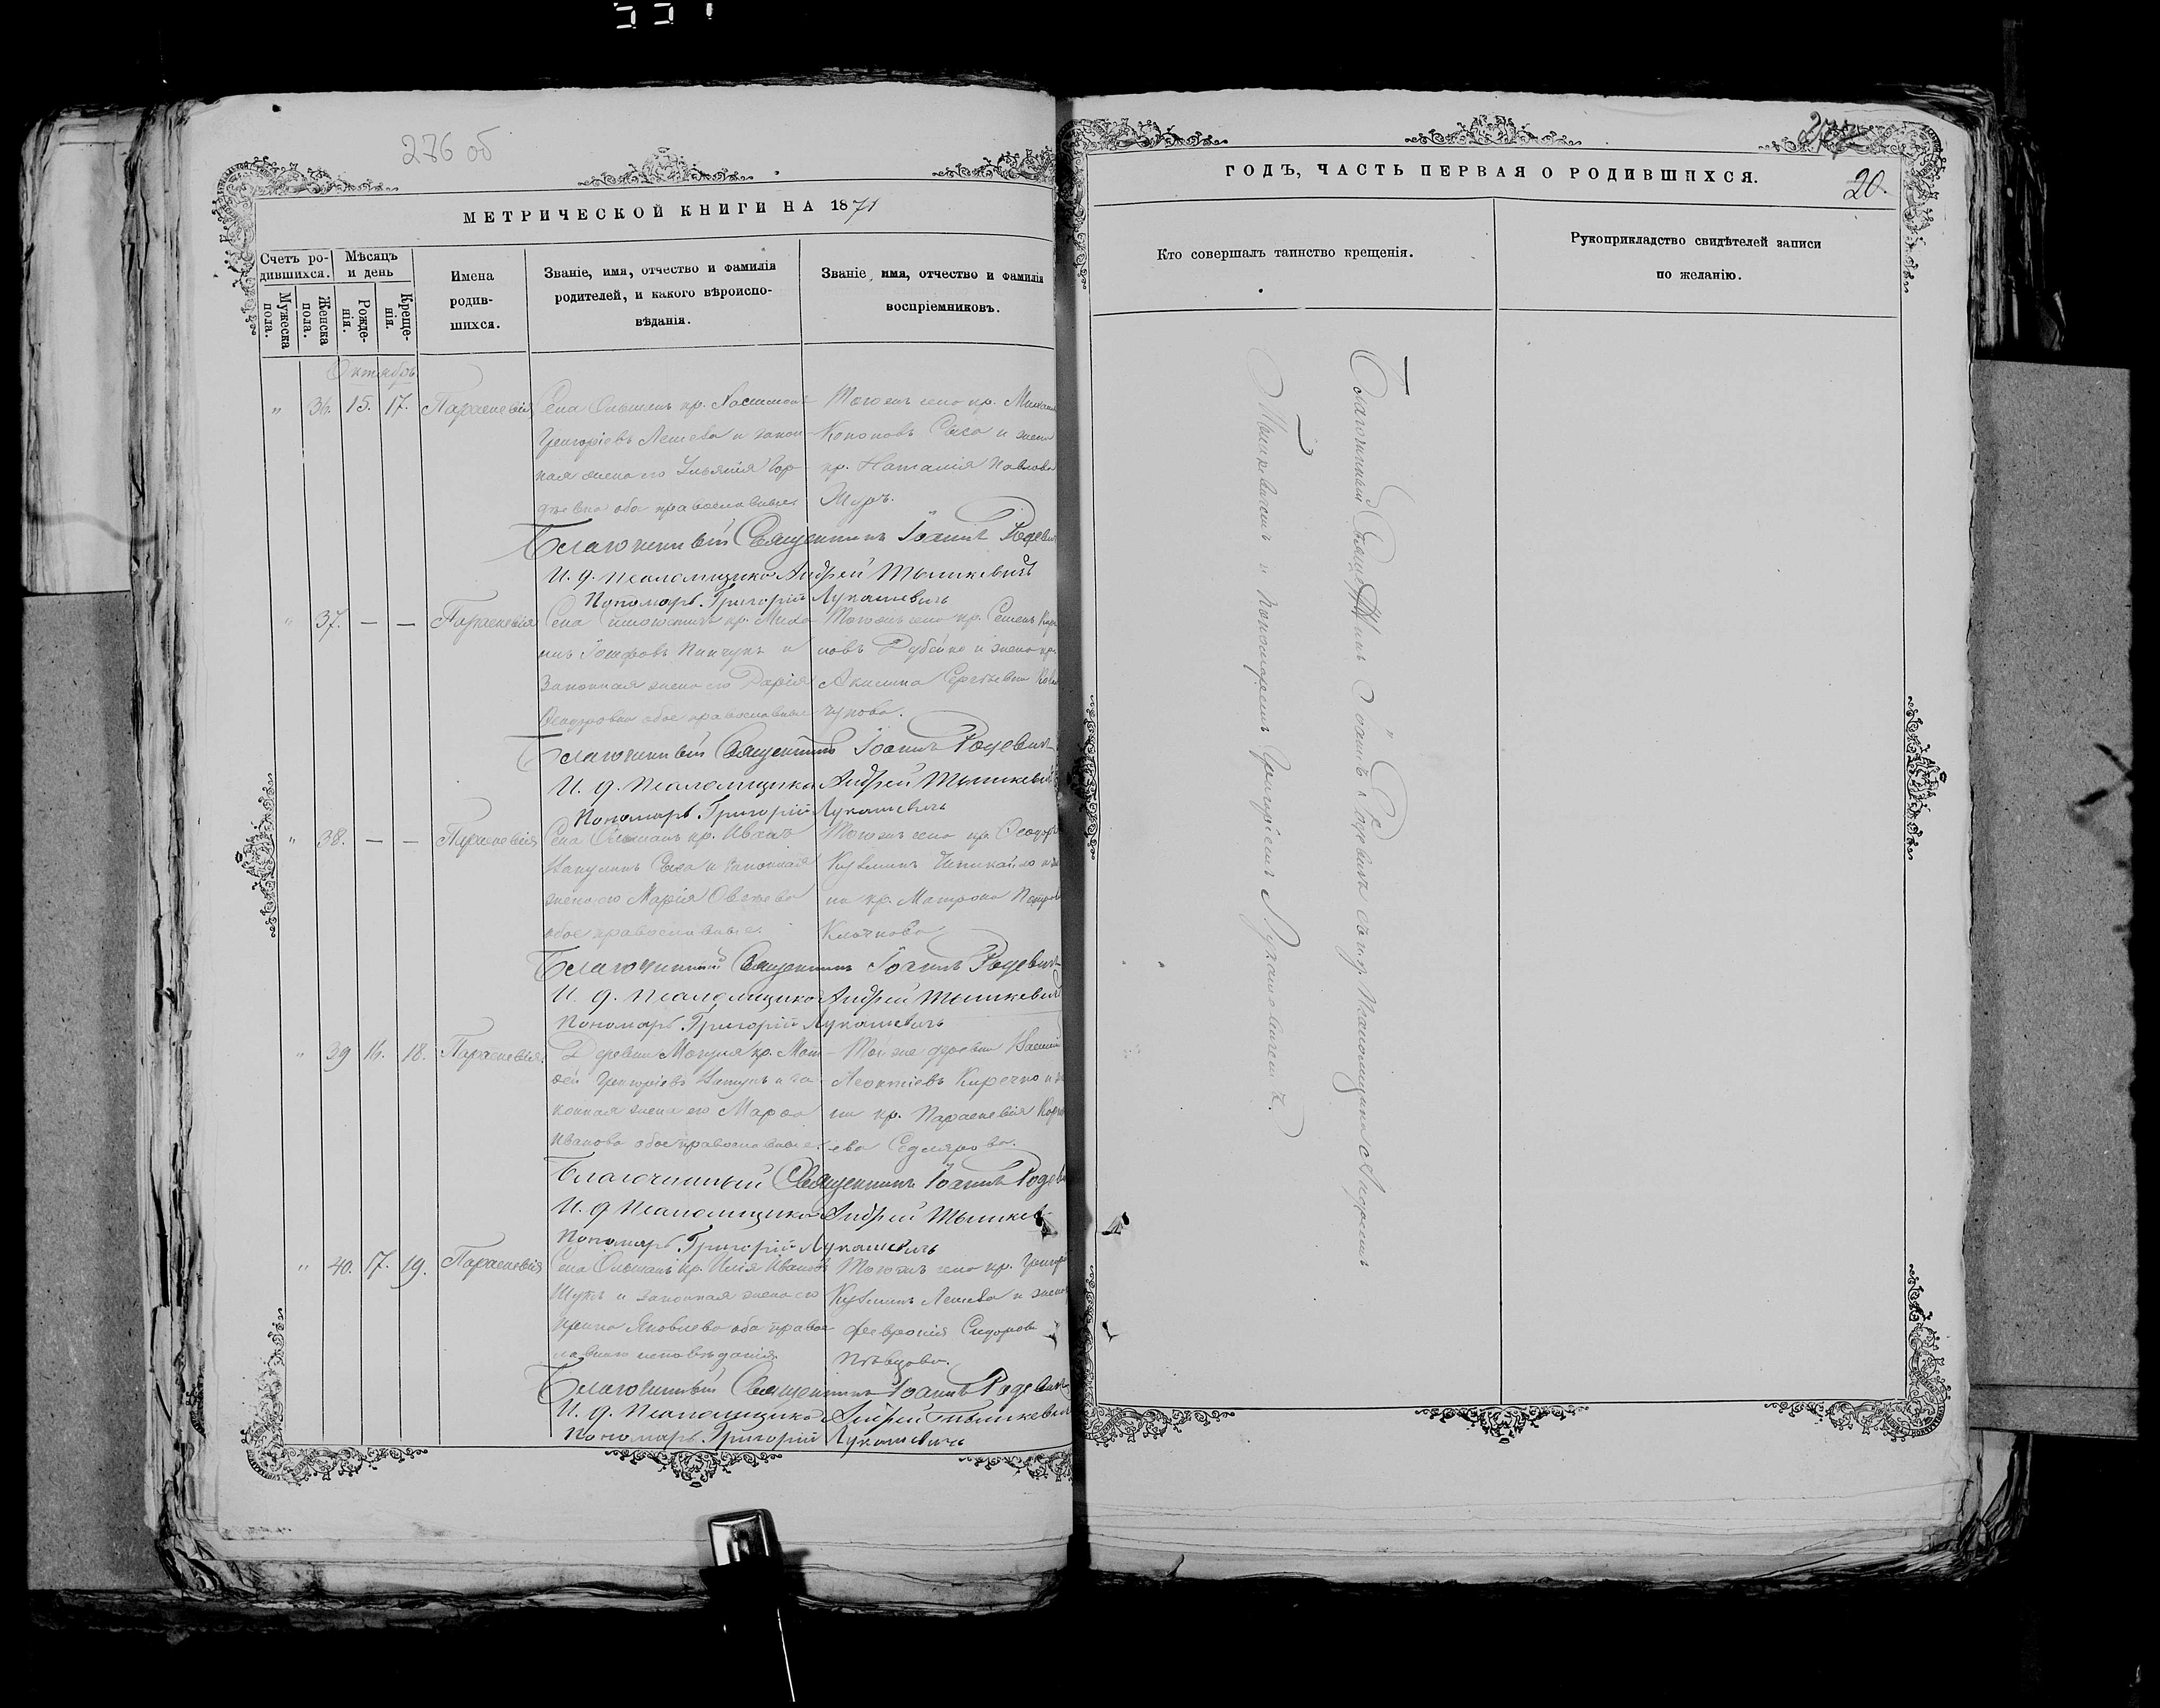 276 об
МЕТРИЧЕСКОЙ КНИГИ НА 1871
Счетъ ро-
дившихся.
Мѣсяцъ
и день
Мужеска
пола.
Женска
пола.
Рожде-
нія.
Креще-
нія.
Имена
родив-
шихся.
Званіе, имя, отчество и фамилія
родителей, и какого вѣроиспо-
вѣданія.
Званіе, имя, отчество и фамилія
воспріемниковъ.
Октябрь
" 36. 15. 17. Параскевія
Села Ольшанъ кр.
Григоріевъ Лешева и закон-
ная жена его Ульянія Гор-
дѣевна оба православные.
Тогожъ села кр.
Кононовъ Сыса и жена
кр. Наталія Павлова
Муръ.
Благочинный Священникъ Іоаннъ Родевичъ
И. д. Псаломщика Андрей Тышкевичъ
Пономарь Григорій Лукашевичъ
" 37. — — Параскевія
Села кр. Миха-
илъ Іосифовъ Пинчукъ и
Законная жена его Дарія
Ѳеодоровна обое православные
Тогожъ села кр. Семенъ
новъ Дубейко и жена кр.
Акилина Сергѣевна
чукова.
Благочинный Священникъ Іоаннъ Родевичъ
И. д. Псаломщика Андрей Тышкевичъ
Пономарь Григорій Лукашевичъ
" 38. — — Параскевія
Села Ольшанъ кр. Иванъ
Сыса и законная
жена его Марія
обое православные.
Тогожъ села кр. Ѳеодоръ
Кузьминъ
на кр. Матрона
Клочкова
Благочинный Священникъ Іоаннъ Родевичъ
И. д. Псаломщика Андрей Тышкевичъ
Пономарь Григорій Лукашевичъ
" 39 16. 18. Параскевія.
Деревни кр. Мат-
ѳей Григоріевъ и за-
конная жена его Марѳа
Иванова обое православные.
Той же деревни
Леонтіевъ Киречко
на кр. Параскевія
ева Седлярова.
Благочинный Священникъ Іоаннъ Родевичъ
И. д. Псаломщика Андрей Тышкевичъ
Пономарь Григорій Лукашевичъ
" 40. 17. 19. Параскевія
Села Ольшанъ кр. Илія Ивановъ
и законная жена его
Ирина Яковлева оба правос-
лавнаго исповѣданія.
Тогожъ села кр.
Кузьминъ Лешева и жена
Февронія Сидорова
Пѣвцова.
Благочинный Священникъ Іоаннъ Родевичъ
И. д. Псаломщика Андрей Тышкевичъ
Пономарь Григорій Лукашевичъ
277
ГОДЪ, ЧАСТЬ ПЕРВАЯ О РОДИВШИХСЯ.
20.
Кто совершалъ таинство крещенія.
Рукоприкладство свидѣтелей записи
по желанію.
Благочинный Священникъ Іоаннъ Родевичъ съ и. д. Псаломщика Андреемъ
Тышкевичемъ и Пономаремъ Григоріемъ Лукашевичемъ.